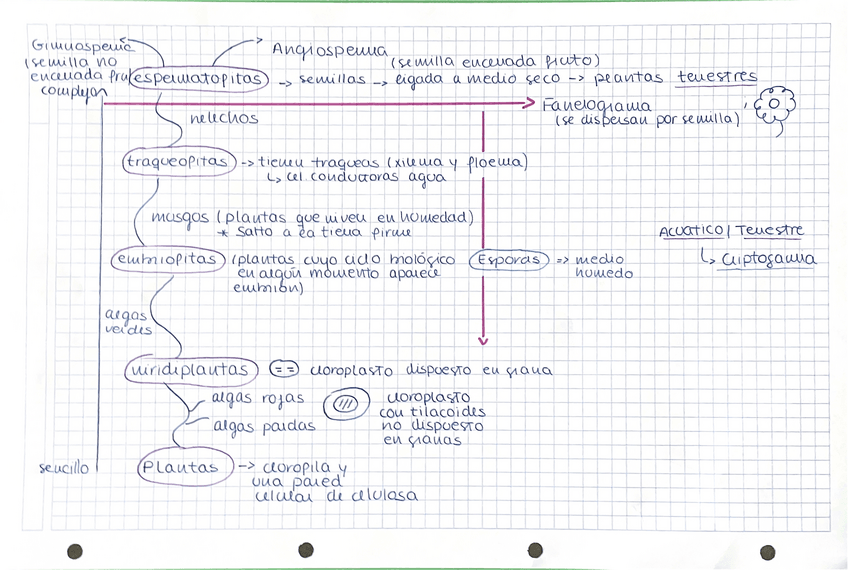 Gimnosperma
(semilla no
encerrada fruto)
complejo
Angiosperma
(semilla encerrada fruto)
espermatofitas -> semillas -> ligada a medio seco -> plantas terrestres
Fanelograma
(se dispersan por semilla)
helechos
traqueofitas -> tienen traqueas (xilema y floema)
↳ cel. conductoras agua
musgos (plantas que viven en humedad)
* salto a la tierra firme
Acuatico / Terrestre
↳ Criptogama
embriofitas (plantas cuyo ciclo biológico
en algún momento aparece
embrión)
Esporas => medio
humedo
algas
verdes
viridiplantas == cloroplasto dispuesto en grana
algas rojas
algas pardas
cloroplasto
con tilacoides
no dispuesto
en granas
sencillo
Plantas -> clorofila y
una pared
celular de celulosa